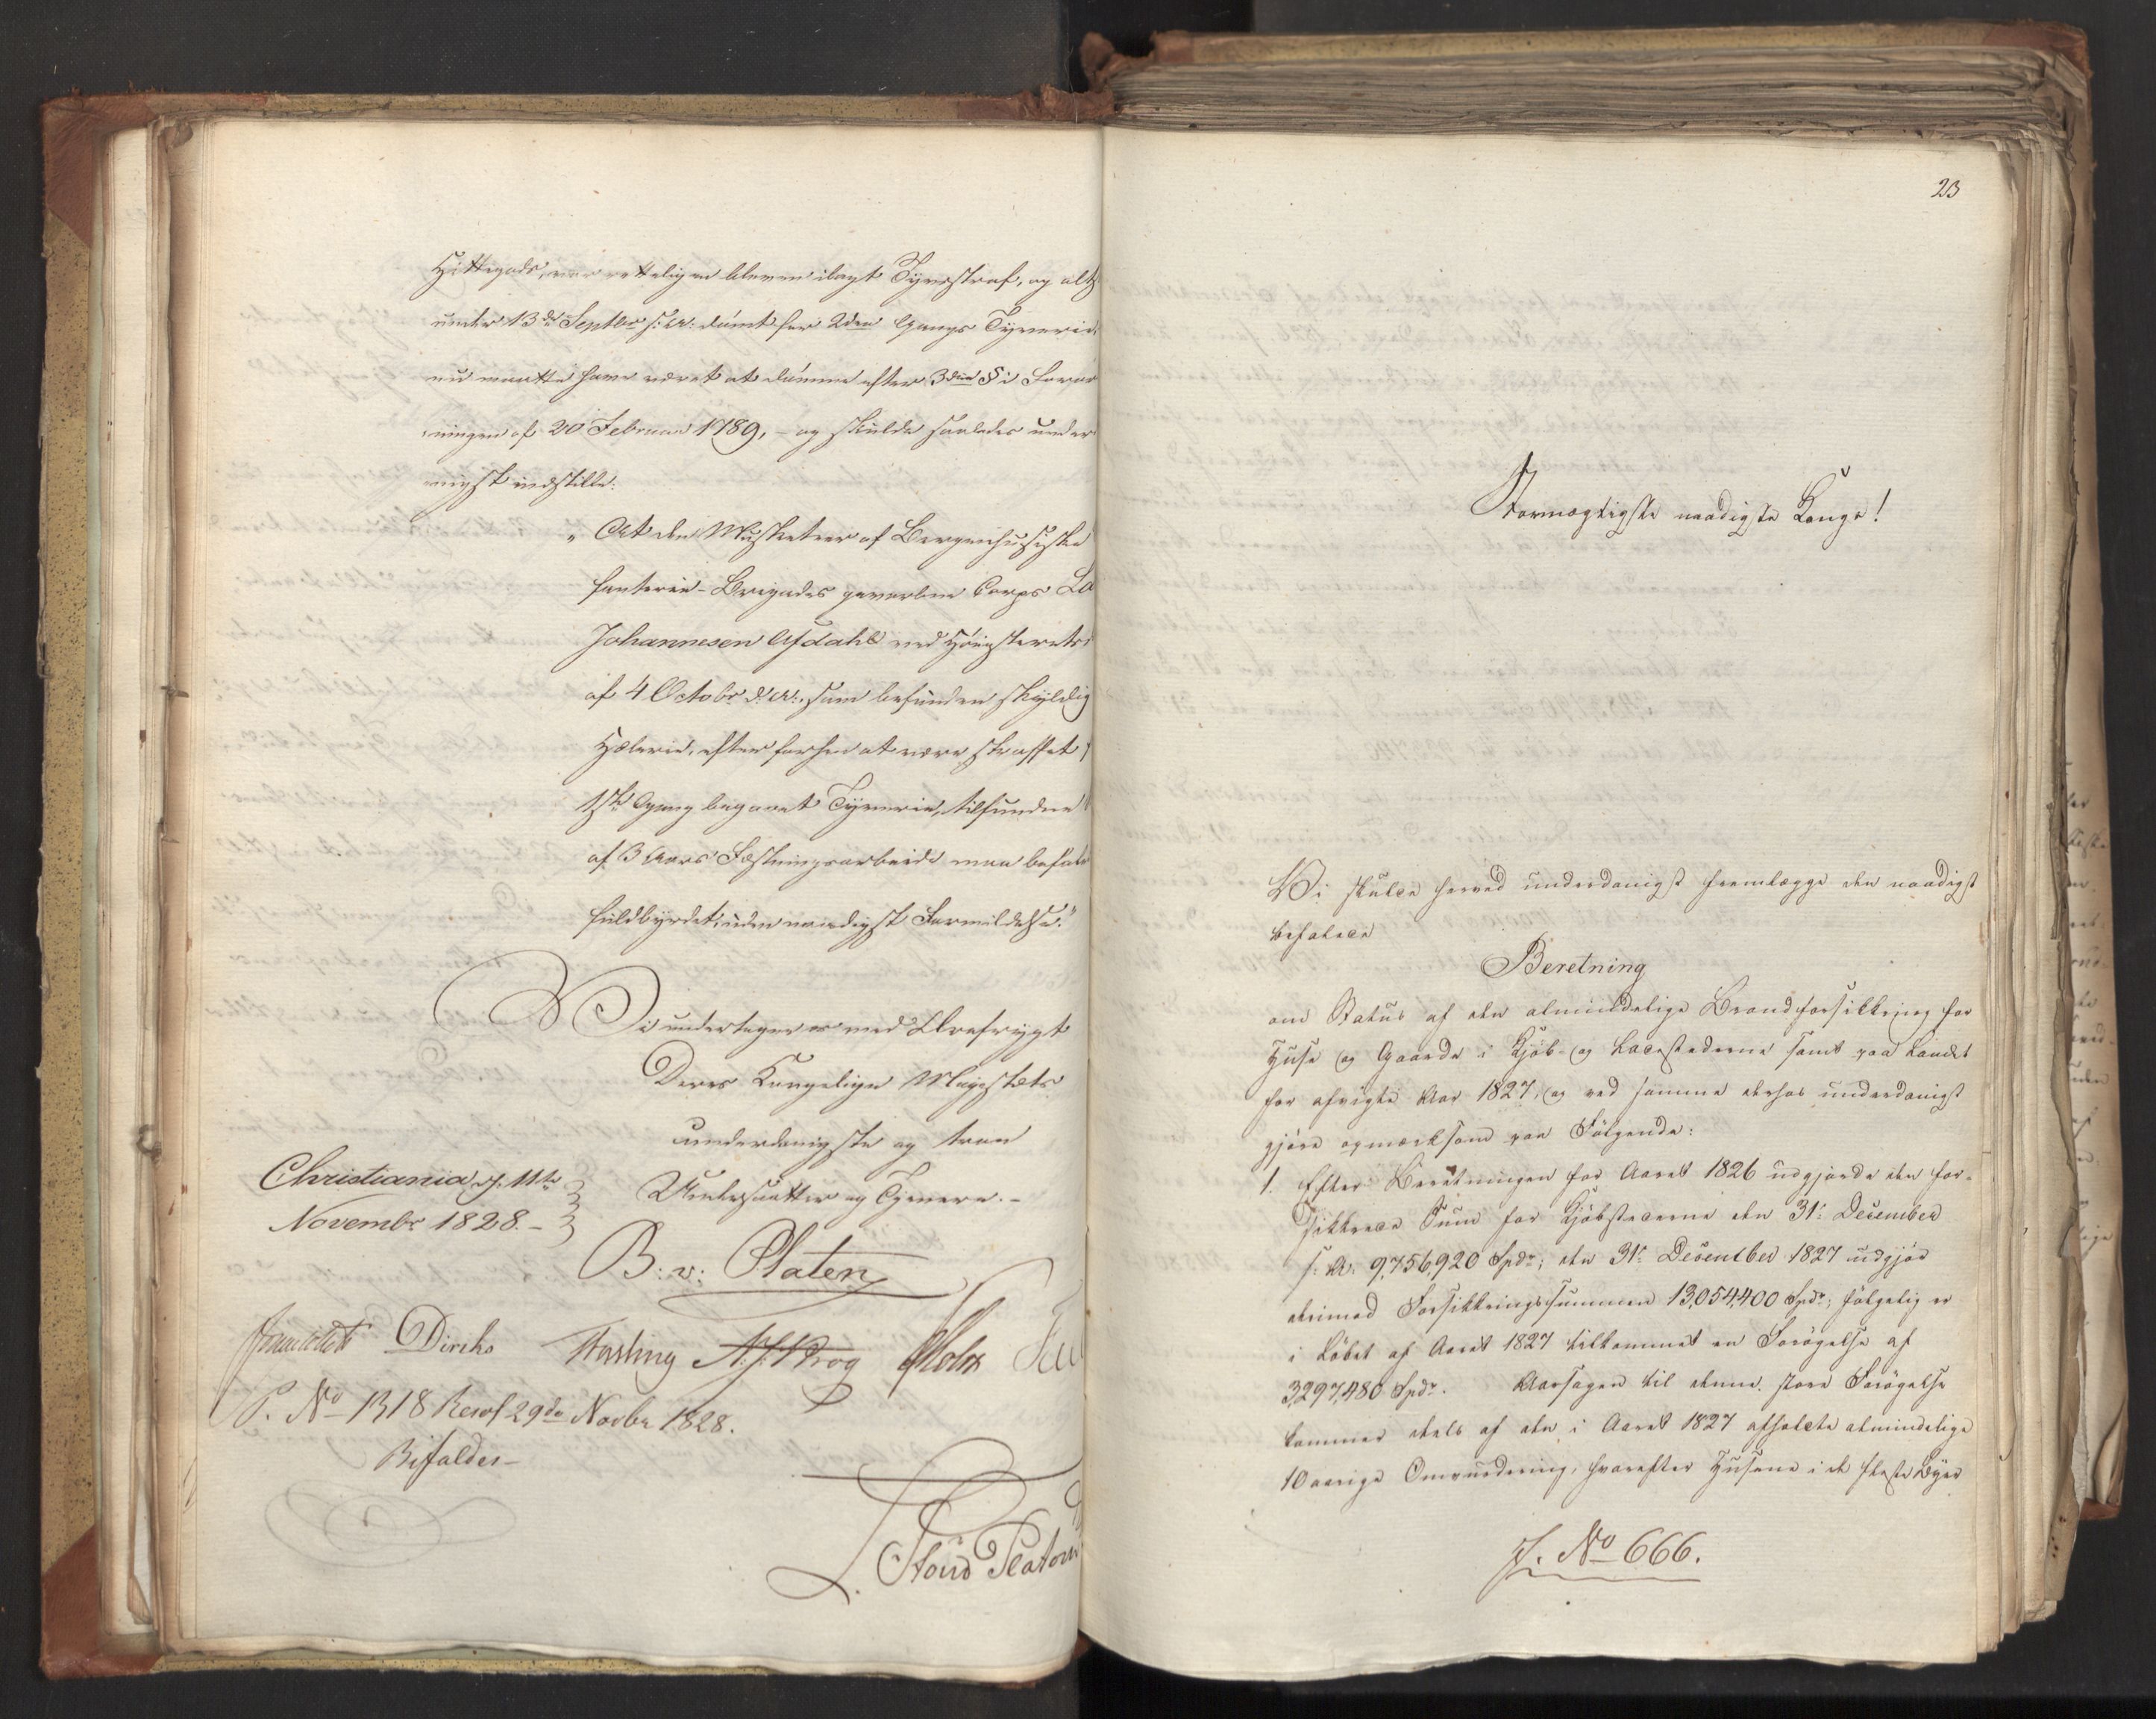 Hittegods, var rettelig en bleven ilagt Tyvsstraf, og alts
under 13de Septbr f: A: dømt for 2den Gangs Tyverie,
nu maatte have været at dømme efter 3die § i Foror
ningen af 20 Februar 1789, - og skulde saaledes under
nigst indstille:
„At den Musketeer af Bergenhusiske
fanterie-Brigades gevorbne Corps La
Johannesen Assdahls ved Høiesterets
af 4 Octobr d: A:, som befunden skyldig
Hælerie, efter forhen at være straffet f
1ste Gang begaaet Tyverie, tilfundne
af 3 Aars Fæstningsarbeide maa befale
fuldbyrdet, uden naadigst Formildelse."
Vi undertegne os med Ærefrygt
Deres Kongelige Majestæts
underdanigste og troe
Undersaatter og Tjenere.-
Christiania d. 11te
Novembr 1828-
B: v: Platen
Diriks Fasting A. J. Krog Holst
P. No 1318 Resol 29de Novbr 1828.
Bifaldes-
23
Stormægtigste naadigste Konge!
Vi skulle herved underdanigst fremlægge den naadigst
befalede
Beretning
om Status af den almindelige Brandforsikkring for
Huse og Gaarde i Kjøb- og Ladestederne samt paa Landet
for afvigte Aar 1827, og ved samme derhos underdanigst
gjøre opmærksom paa Følgende:
1. Efter Beretningen for Aaret 1826 udgjorde den for-
sikkrede Sum for Kjøbstæderne den 31: December
f: A: 9,756,920 Spdr; den 31: December 1827 udgjør
derimod Forsikkringssummen 13,054,400 Spdr; følgelig er
i Løbet af Aaret 1827 tilkommet en Forøgelse af
3,297,480 Spdr. Aarsagen til denne store Forøgelse
kommer deels af den i Aaret 1827 afholdte almindelige
10 aarige Omvurdering, hvorefter Husene i de fleste Byer
J. No 666.